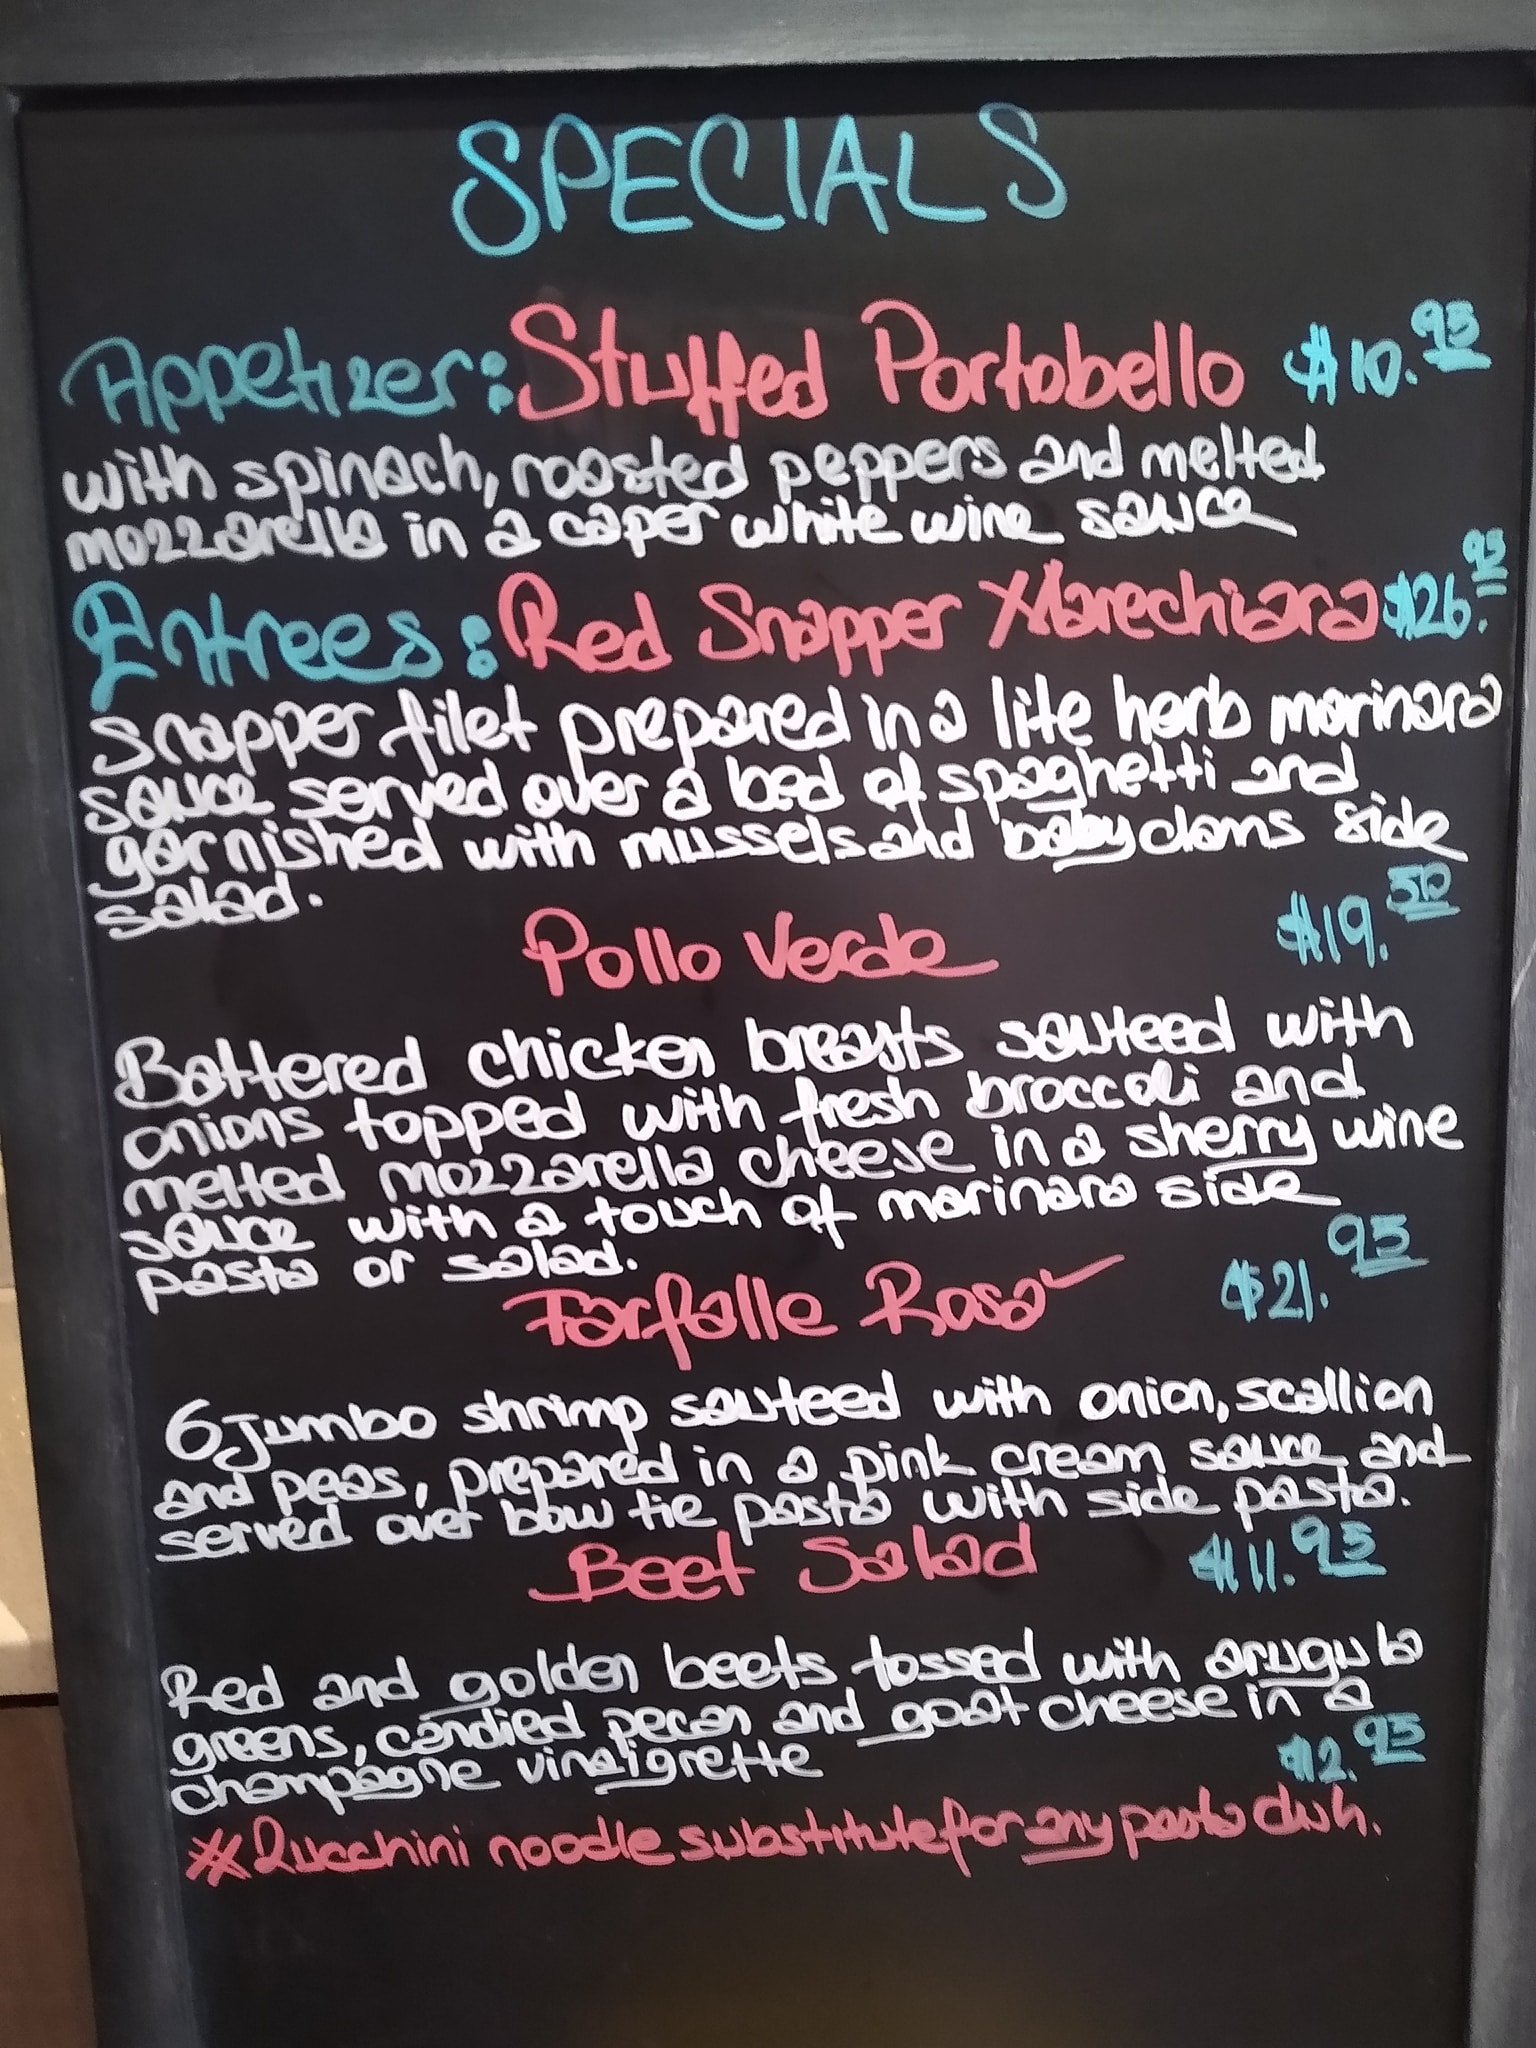 SPECIALS
Appetizer: Stuffed Portobello $10.95
with spinach, roasted peppers and melted
mozzarella in a caper white wine sauce
Entrees: Red Snapper Marechiara $26.95
Snapper filet prepared in a lite herb marinara
sauce served over a bed of spaghetti and
garnished with mussels and baby clams side
salad.
Pollo Verde $19.50
Battered chicken breasts sauteed with
onions topped with fresh broccoli and
melted mozzarella cheese in a sherry wine
sauce with a touch of marinara side
pasta or salad.
Farfalle Rosa $21.95
6 Jumbo shrimp sauteed with onion, scallion
and peas, prepared in a pink cream sauce and
served over bow tie pasta with side pasta.
Beet Salad $11.95
Red and golden beets tossed with arugula
greens, candied pecan and goat cheese in a
champagne vinaigrette $2.95
* Zucchini noodle substitute for any pasta dish.